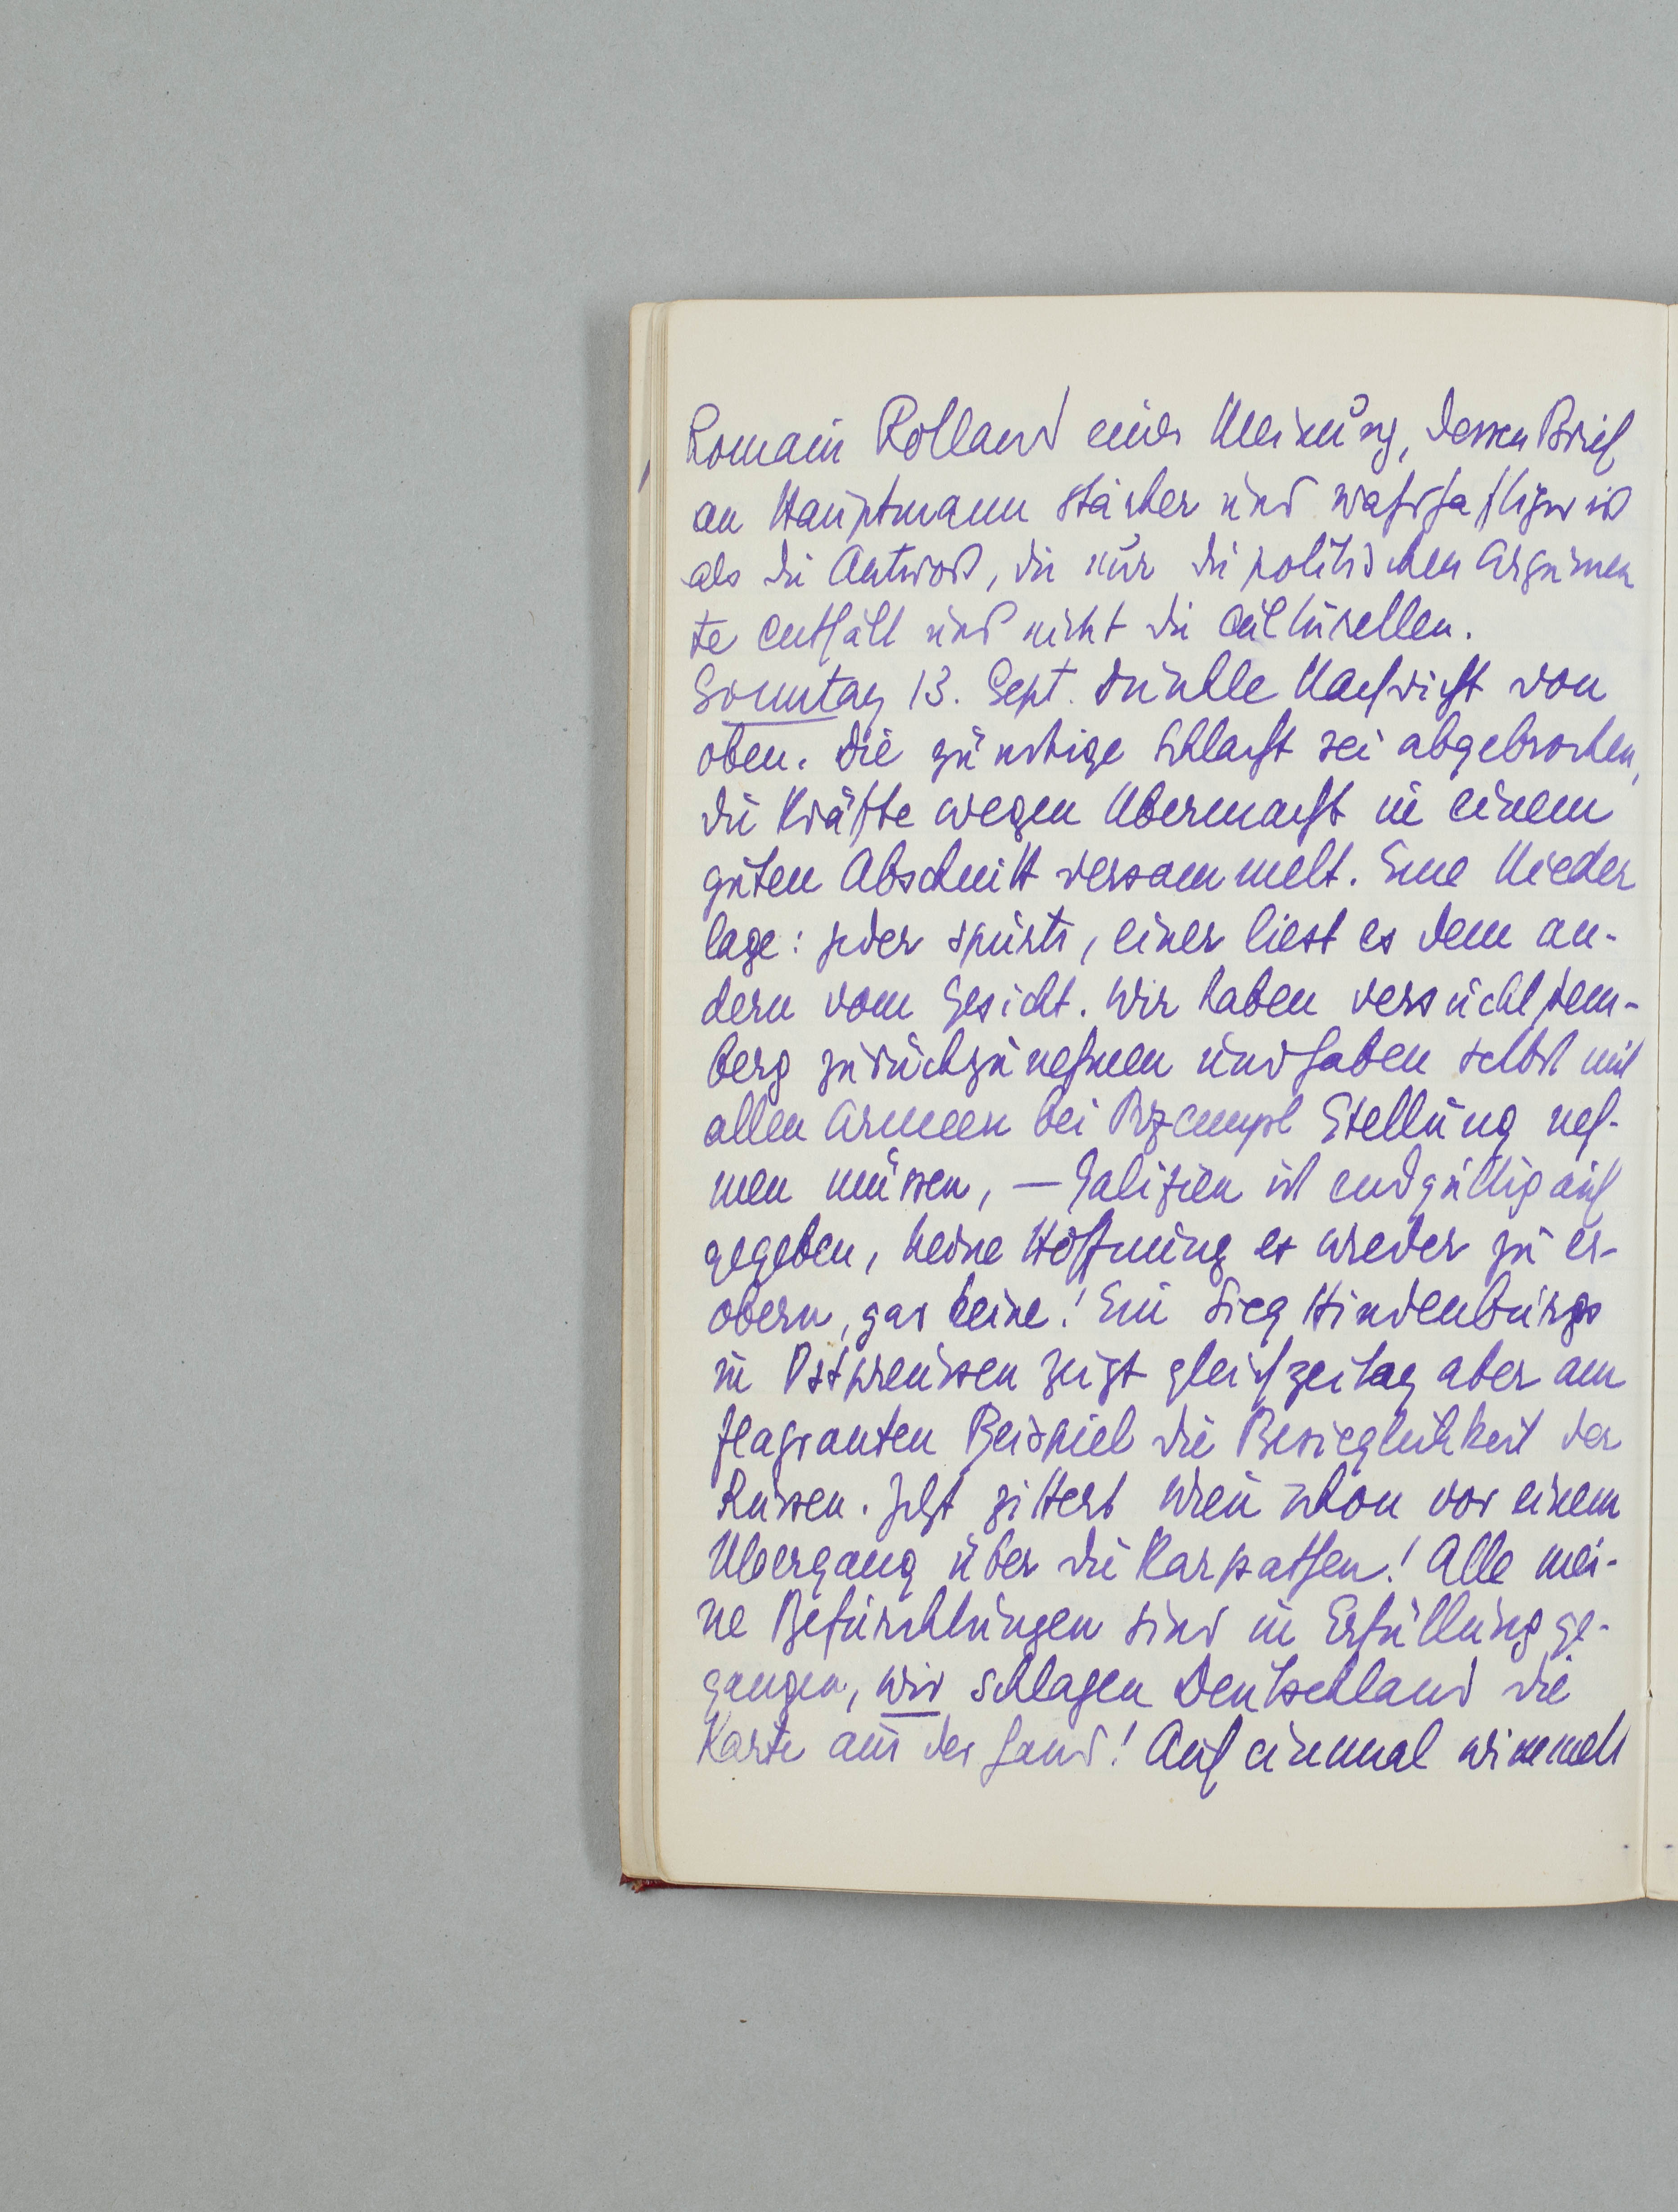 Romain Rolland einer Meinung, dessen Brief
an Hauptmann stärker und wahrhaftiger ist
als die Antwort, die nur die politischen Argumen
te enthält und nicht die culturellen.
Sonntag 13. Sept. Dunkle Nachricht von
oben. Die günstige Schlacht sei abgebrochen,
die Kräfte wegen Übermacht in einem
guten Abschnitt versammelt. Eine Nieder
lage: jeder spürts, einer liest es dem an-
dern vom Gesicht. Wir haben versucht Lem-
berg zurückzunehmen und haben selbst mit
allen Armeen bei Przempsl Stellung neh-
men müssen, — Galizien ist endgültig auf
gegeben, keine Hoffnung es wieder zu er-
obern, gar keine! Ein Sieg Hindenburgs
in Ostpreussen zeigt gleichzeitag aber am
flagranten Beispiel die Besieglichkeit der
Russen. Jetzt zittert Wien schon vor einem
Übergang über die Karpathen! Alle mei-
ne Befürchtungen sind in Erfüllung ge-
gangen, wir schlagen Deutschland die
Karte aus der Hand! Auf einmal wimmelt